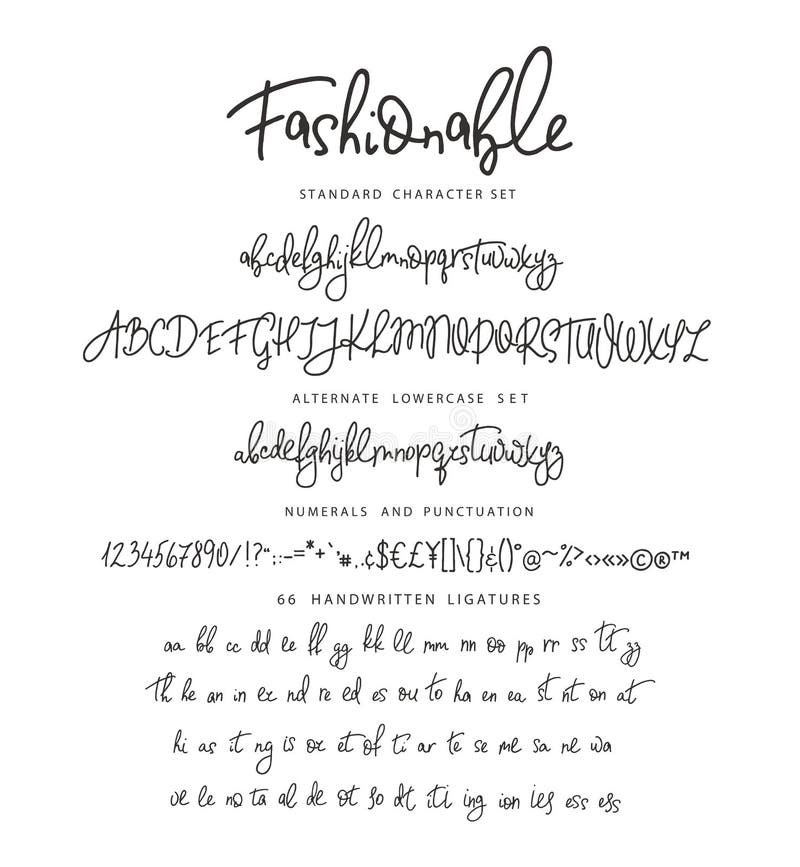 Fashionable
STANDARD CHARACTER SET
abcdefghijklmnopqrstuvwxyz
ABCDEFGHIJKLMNOPQRSTUVWXYZ
ALTERNATE LOWERCASE SET
abcdefghijklmnopqrstuvwxyz
NUMERALS AND PUNCTUATION
1234567890/!?“;:-=*+`’#.,¢$€£¥[]\{}&()°@~%><>«»©®™
66 HANDWRITTEN LIGATURES
aa bb cc dd ee ff gg kk ll mm nn oo pp rr ss tt zz
th he an in er nd re ed es ou to ha en ea st nt on at
hi as it ng is or et of ti ar te se me sa ne wa
ve le no ta al de ot so dt iti ing ion ies ess